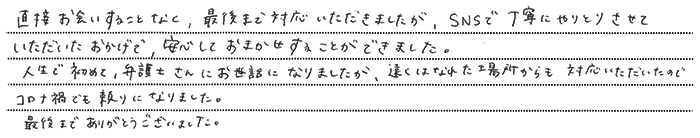 直接お会いすることなく、最後まで対応いただきましたが、SNSで丁寧にやりとりさせて
いただいたおかげで、安心しておまかせすることができました。
人生で初めて、弁護士さんにお世話になりましたが、遠くはなれた場所からも対応いただいたので
コロナ禍でも頼りになりました。
最後までありがとうございました。